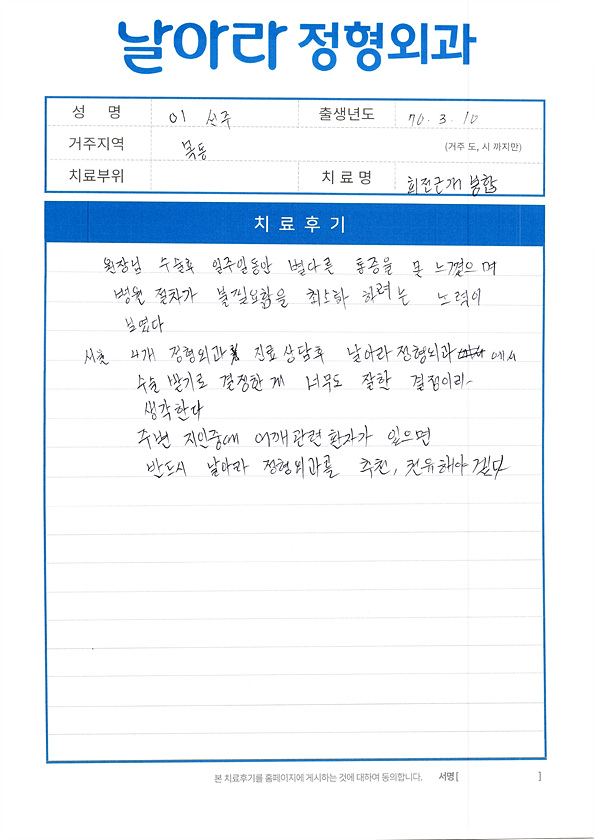 날아라 정형외과
성 명 이 선주 출생년도 70. 3. 10
거주지역 목동 (거주 도, 시 까지만)
치료부위 치 료 명 회전근개 봉합
치 료 후 기
원장님 수술후 일주일동안 별다른 통증을 못 느꼈으며
병원 절차가 불필요함을 최소화 하려는 노력이
보였다
서초 4개 정형외과 진료상담후 날아라 정형외과 에서
수술 받기로 결정한게 너무도 잘한 결정이라
생각한다
주변 지인중에 어깨관련환자가 있으면
반드시 날아라 정형외과를 추천, 권유해야 겠다
본 치료후기를 홈페이지에 게시하는 것에 대하여 동의합니다. 서명 [ ]